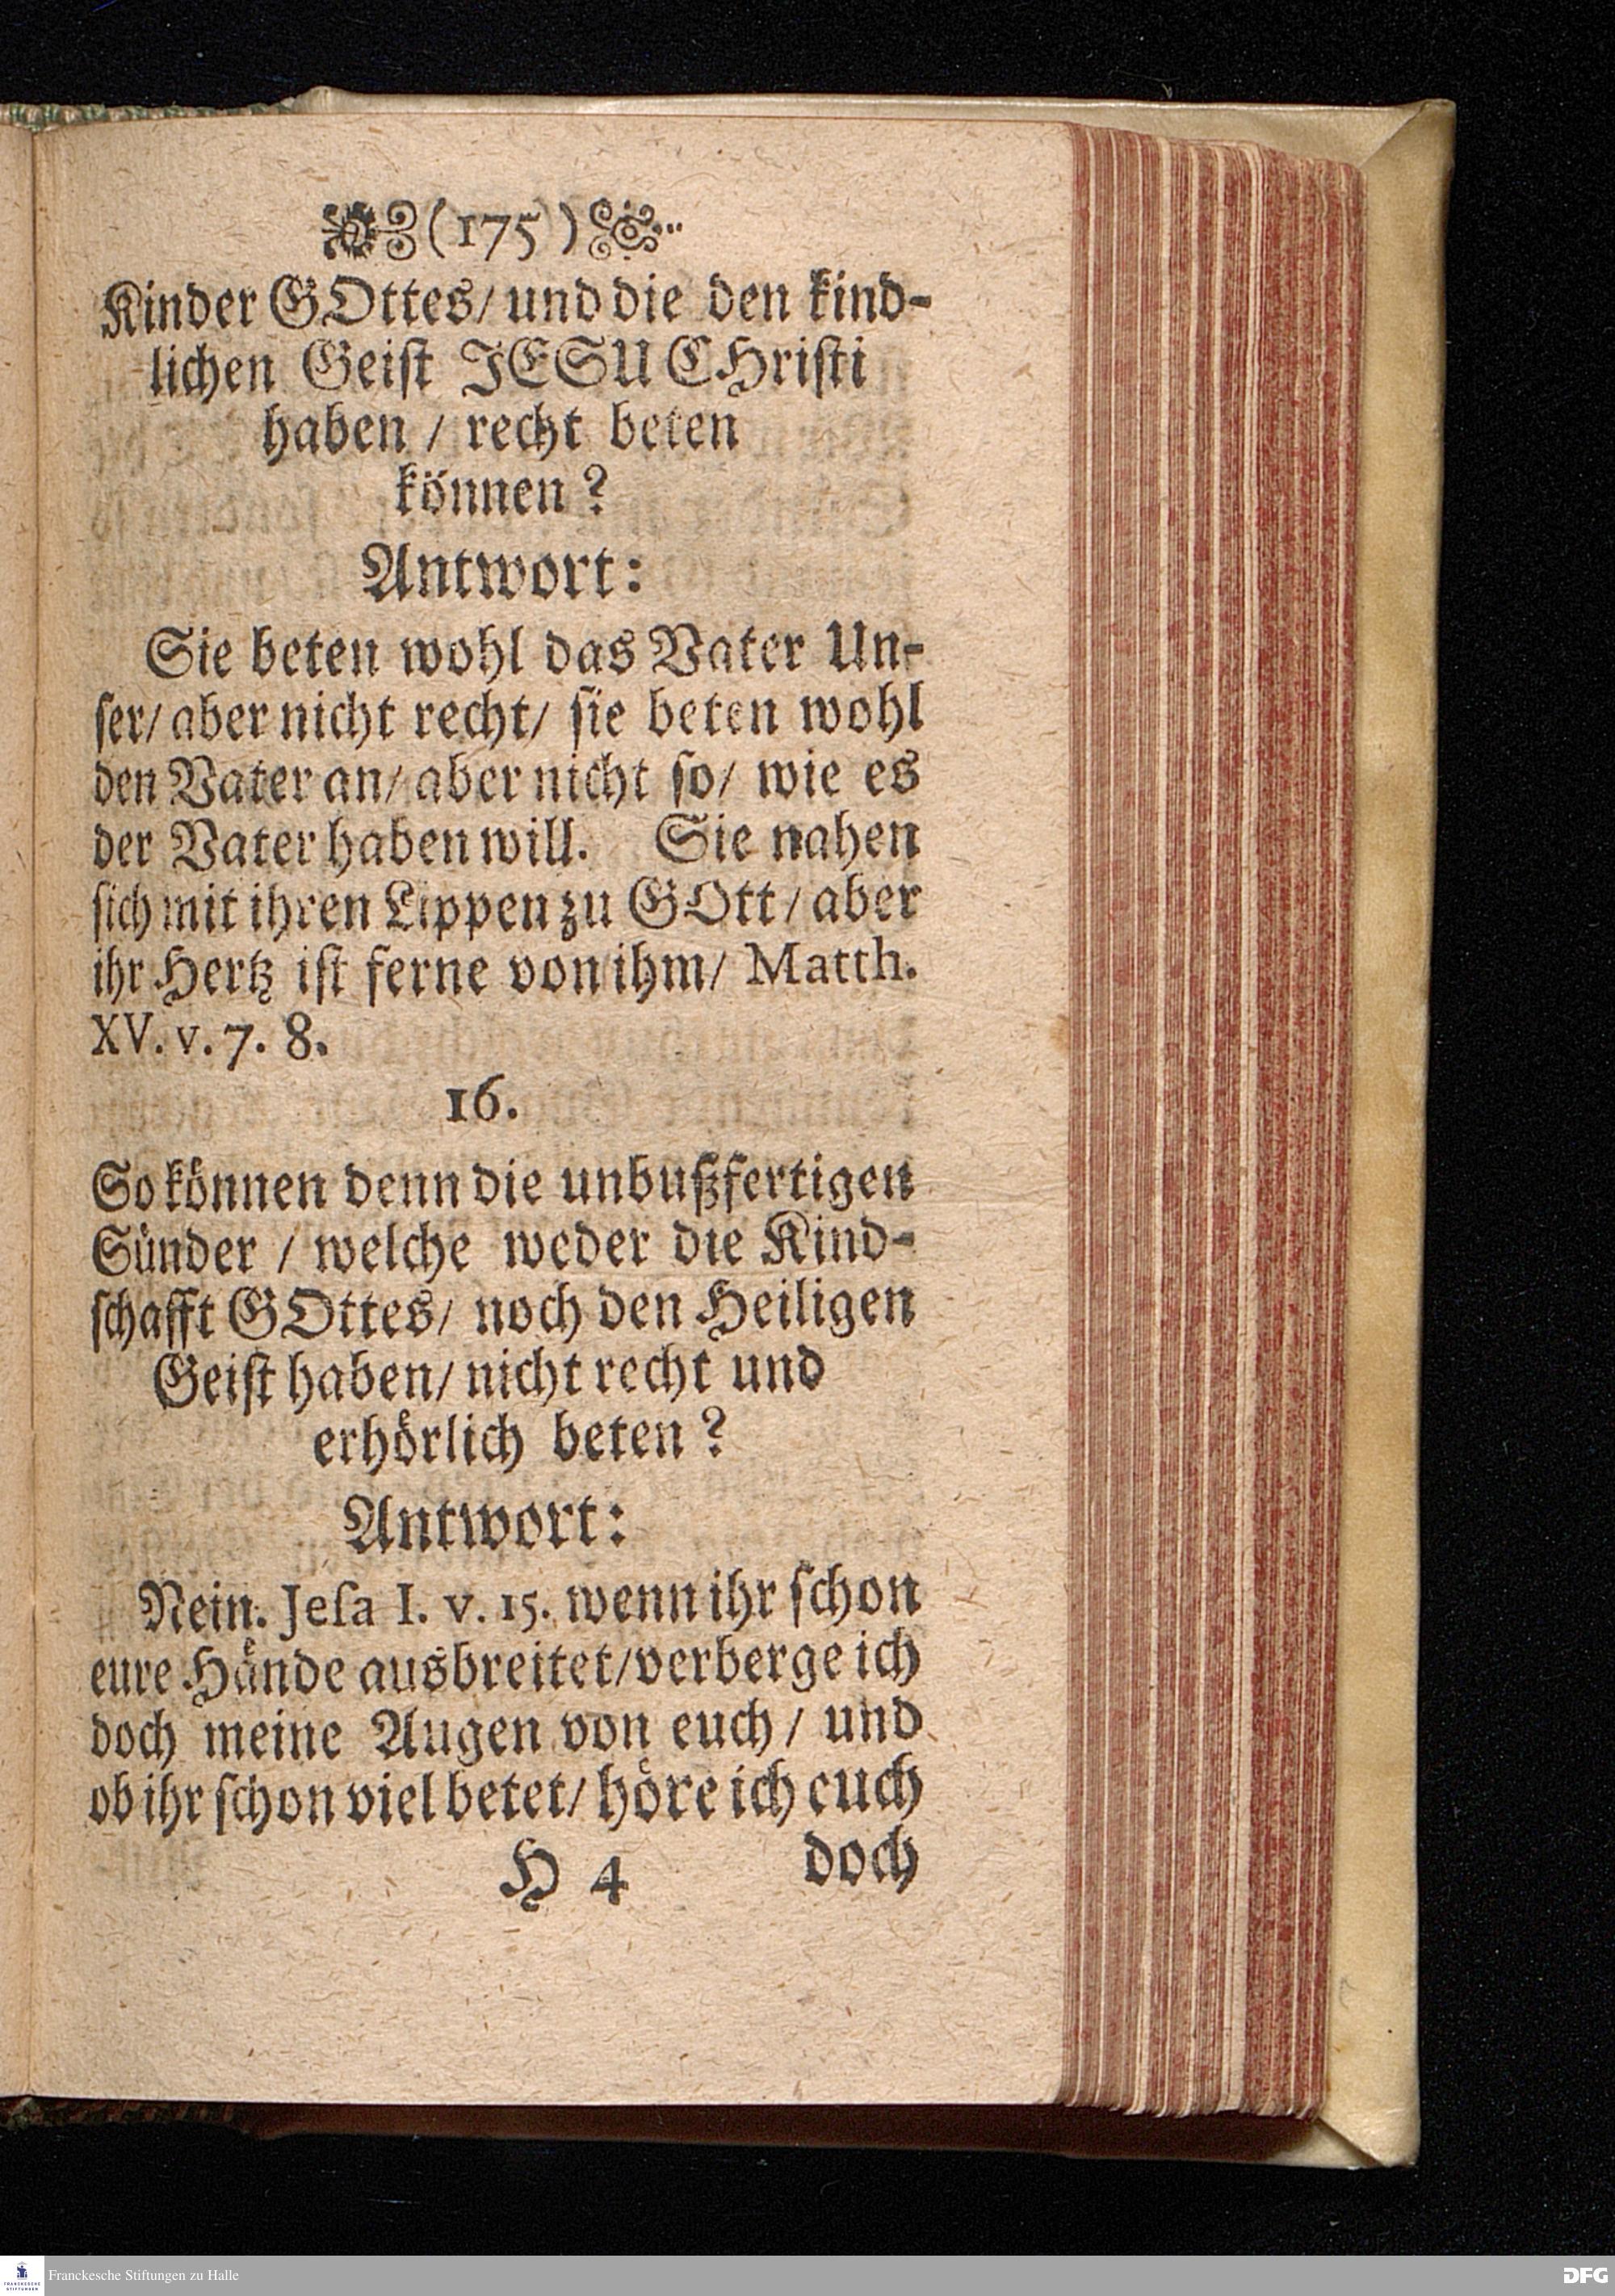 (175)
Kinder GOttes/ und die den kind-
lichen Geiſt JESU CHriſti
haben / recht beten
können?
Antwort:
Sie beten wohl das Vater Un-
ſer/ aber nicht recht/ ſie beten wohl
den Vater an/ aber nicht ſo/ wie es
der Vater haben will. Sie nahen
ſich mit ihren Lippen zu GOtt / aber
ihr Hertz iſt ferne von ihm/ Matth.
XV. v. 7. 8.
16.
So koͤnnen denn die unbußfertigen
Suͤnder / welche weder die Kind-
ſchafft GOttes/ noch den Heiligen
Geiſt haben/ nicht recht und
erhoͤrlich beten?
Antwort:
Nein. Jeſa I. v. 15. wenn ihr ſchon
eure Haͤnde ausbreitet/ verberge ich
doch meine Augen von euch / und
ob ihr ſchon viel betet/ höre ich euch
H 4 doch
FRANCKESCHE STIFTUNGEN
Franckesche Stiftungen zu Halle
DFG